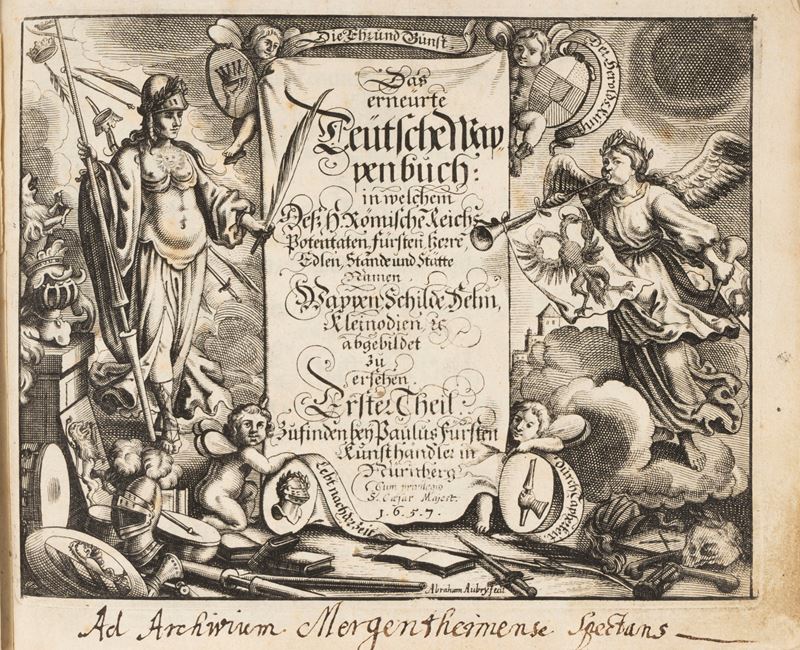 Die Ehr und Gunst
Der Herolds Kunst
Das
erneürte
Teütsche Wap
penbuch:
in welchem
Deß H. Römische Reichs
Potentaten fürsten Herrē
Edlen, Stände und Stätte
Namen
Wappen Schilde Helm,
Kleinodien, ꝛc
abgebildet
zu
ersehen.
Erster Theil.
Zufinden bey Paulus Fürsten
Kunsthändler in
Nürnberg
Cum privilegio
S. Cæsar Majest.
1.6.5.7.
Lebt nach der Zeit
durch Tapferkeit
Abraham Aubry fecit
Ad Archivium Mergentheimense Spectans